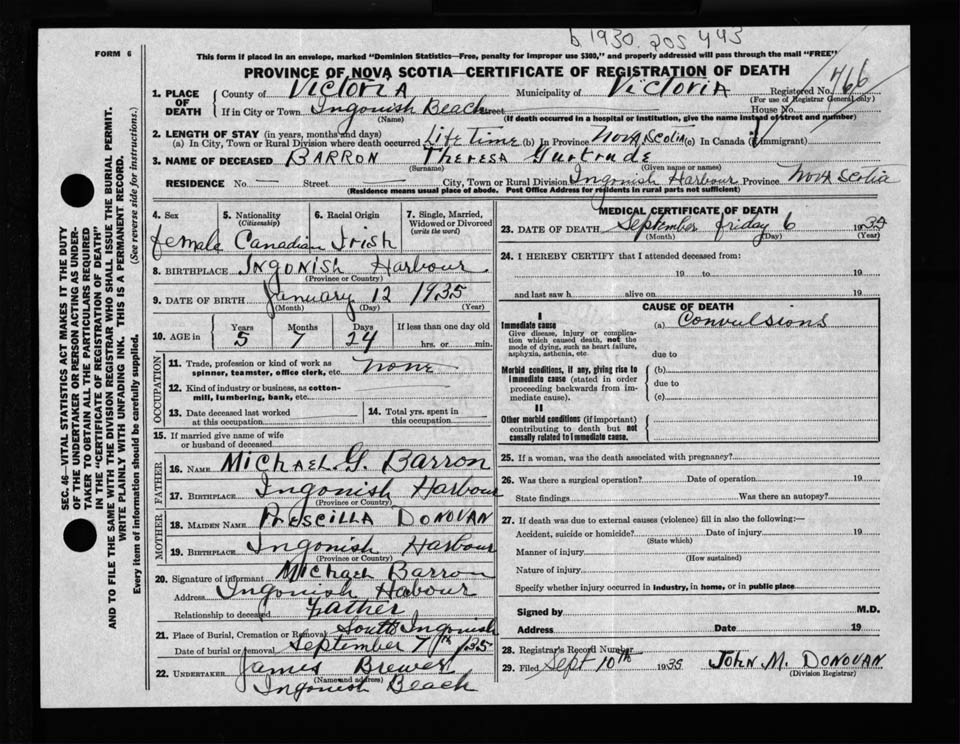 b 1930. 205 443
FORM 6
This form if placed in an envelope, marked "Dominion Statistics—Free, penalty for improper use $300," and properly addressed will pass through the mail "FREE"
PROVINCE OF NOVA SCOTIA—CERTIFICATE OF REGISTRATION OF DEATH
1. PLACE OF DEATH
County of Victoria Municipality of Victoria Registered No. 766
(For use of Registrar General only)
If in City or Town Ingonish Beach Street House No.
(Name) (If death occurred in a hospital or institution, give the name instead of street and number)
2. LENGTH OF STAY (in years, months and days)
(a) In City, Town or Rural Division where death occurred Life Time (b) In Province Nova Scotia (c) In Canada (if immigrant)
3. NAME OF DECEASED BARRON Theresa Gurtrude
(Surname) (Given name or names)
RESIDENCE No. — Street City, Town or Rural Division Ingonish Harbour Province Nova Scotia
(Residence means usual place of abode. Post Office Address for residents in rural parts not sufficient)
4. Sex 5. Nationality (Citizenship) 6. Racial Origin 7. Single, Married, Widowed or Divorced (write the word)
female Canadian Irish
8. BIRTHPLACE Ingonish Harbour
(Province or Country)
9. DATE OF BIRTH January 12 1935
(Month) (Day) (Year)
10. AGE in Years Months Days If less than one day old
5 7 24 hrs. or min.
OCCUPATION
11. Trade, profession or kind of work as spinner, teamster, office clerk, etc. none
12. Kind of industry or business, as cotton-mill, lumbering, bank, etc.
13. Date deceased last worked at this occupation
14. Total yrs. spent in this occupation
15. If married give name of wife or husband of deceased
FATHER
16. NAME Michael G. Barron
17. BIRTHPLACE Ingonish Harbour
(Province or Country)
MOTHER
18. MAIDEN NAME Prescilla Donovan
19. BIRTHPLACE Ingonish Harbour
(Province or Country)
20. Signature of informant Michael Barron
Address Ingonish Harbour
Relationship to deceased Father
21. Place of Burial, Cremation or Removal South Ingonish
Date of burial or removal September 7th 1935
22. UNDERTAKER James Brewer
(Name and address)
Ingonish Beach
MEDICAL CERTIFICATE OF DEATH
23. DATE OF DEATH September friday 6 1935
(Month) (Day) (Year)
24. I HEREBY CERTIFY that I attended deceased from:
19 to 19
and last saw h alive on 19
CAUSE OF DEATH
I
Immediate cause (a) Convulsions
Give disease, injury or complication which caused death, not the mode of dying, such as heart failure, asphyxia, asthenia, etc.
due to
Morbid conditions, if any, giving rise to immediate cause (stated in order proceeding backwards from immediate cause).
(b)
due to
(c)
II
Other morbid conditions (if important) contributing to death but not causally related to immediate cause.
25. If a woman, was the death associated with pregnancy?
26. Was there a surgical operation? Date of operation 19
State findings Was there an autopsy?
27. If death was due to external causes (violence) fill in also the following:—
Accident, suicide or homicide? Date of injury 19
(State which)
Manner of injury
(How sustained)
Nature of injury
Specify whether injury occurred in industry, in home, or in public place
Signed by M.D.
Address Date 19
28. Registrar's Record Number
29. Filed Sept 10th 1935 John M. Donovan
(Division Registrar)
SEC. 46—VITAL STATISTICS ACT MAKES IT THE DUTY
OF THE UNDERTAKER OR PERSON ACTING AS UNDER-
TAKER TO OBTAIN ALL THE PARTICULARS REQUIRED
IN THE "CERTIFICATE OF REGISTRATION OF DEATH"
AND TO FILE THE SAME WITH THE DIVISION REGISTRAR WHO SHALL ISSUE THE BURIAL PERMIT.
WRITE PLAINLY WITH UNFADING INK. THIS IS A PERMANENT RECORD.
Every item of information should be carefully supplied. (See reverse side for instructions.)